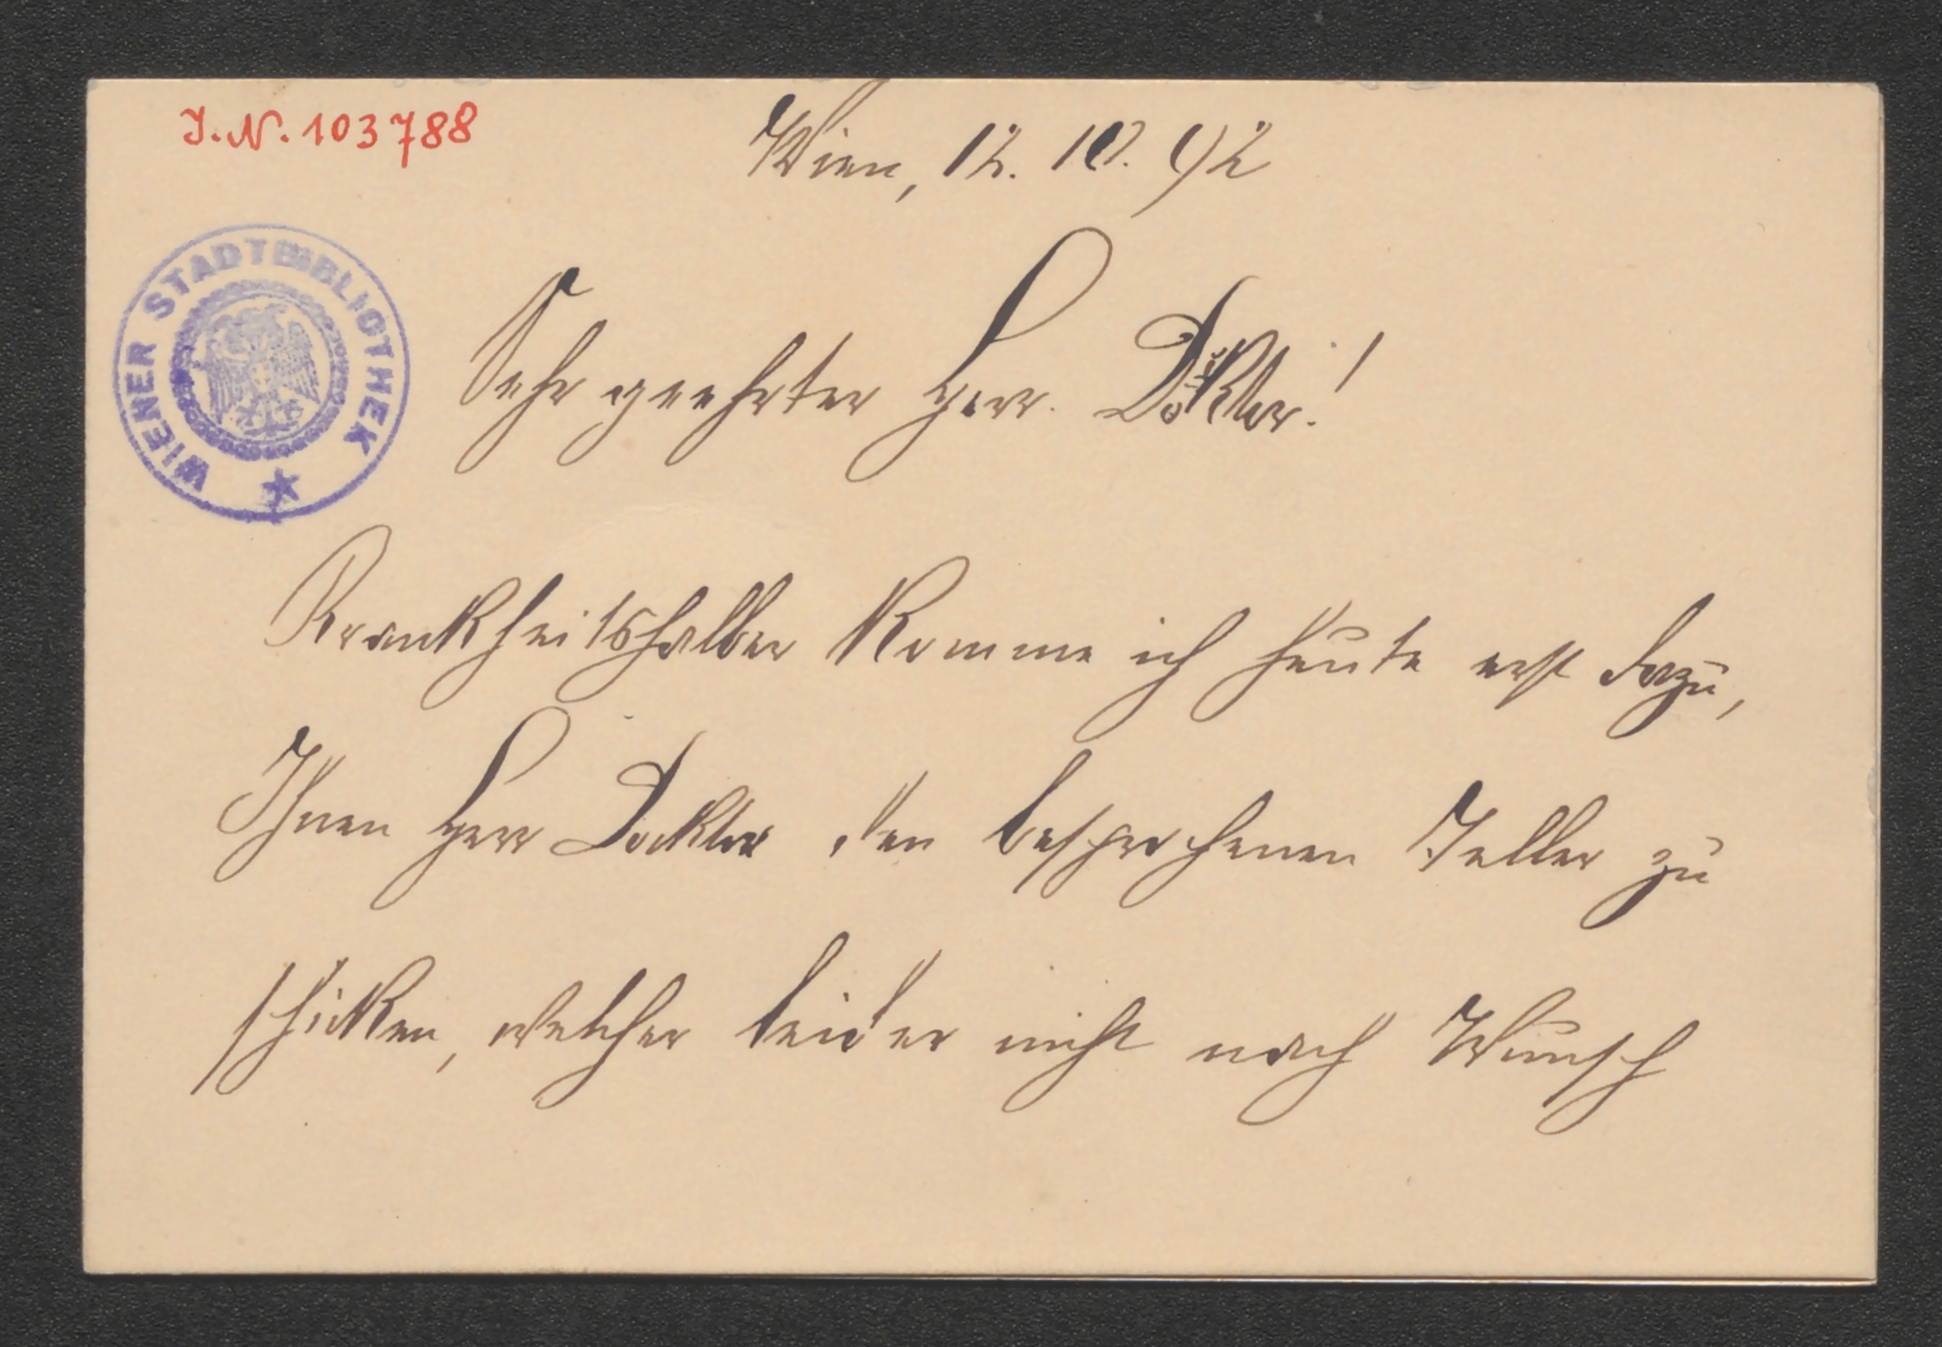 J.N. 103788
Wien, 12. 10. 92
WIENER STADTBIBLIOTHEK
Sehr geehrter Herr Doktor!
Krankheitshalber komme ich heute erst dazu,
Ihnen Herr Docktor den besprochenen Teller zu
schicken, welcher leider nicht nach Wunsch